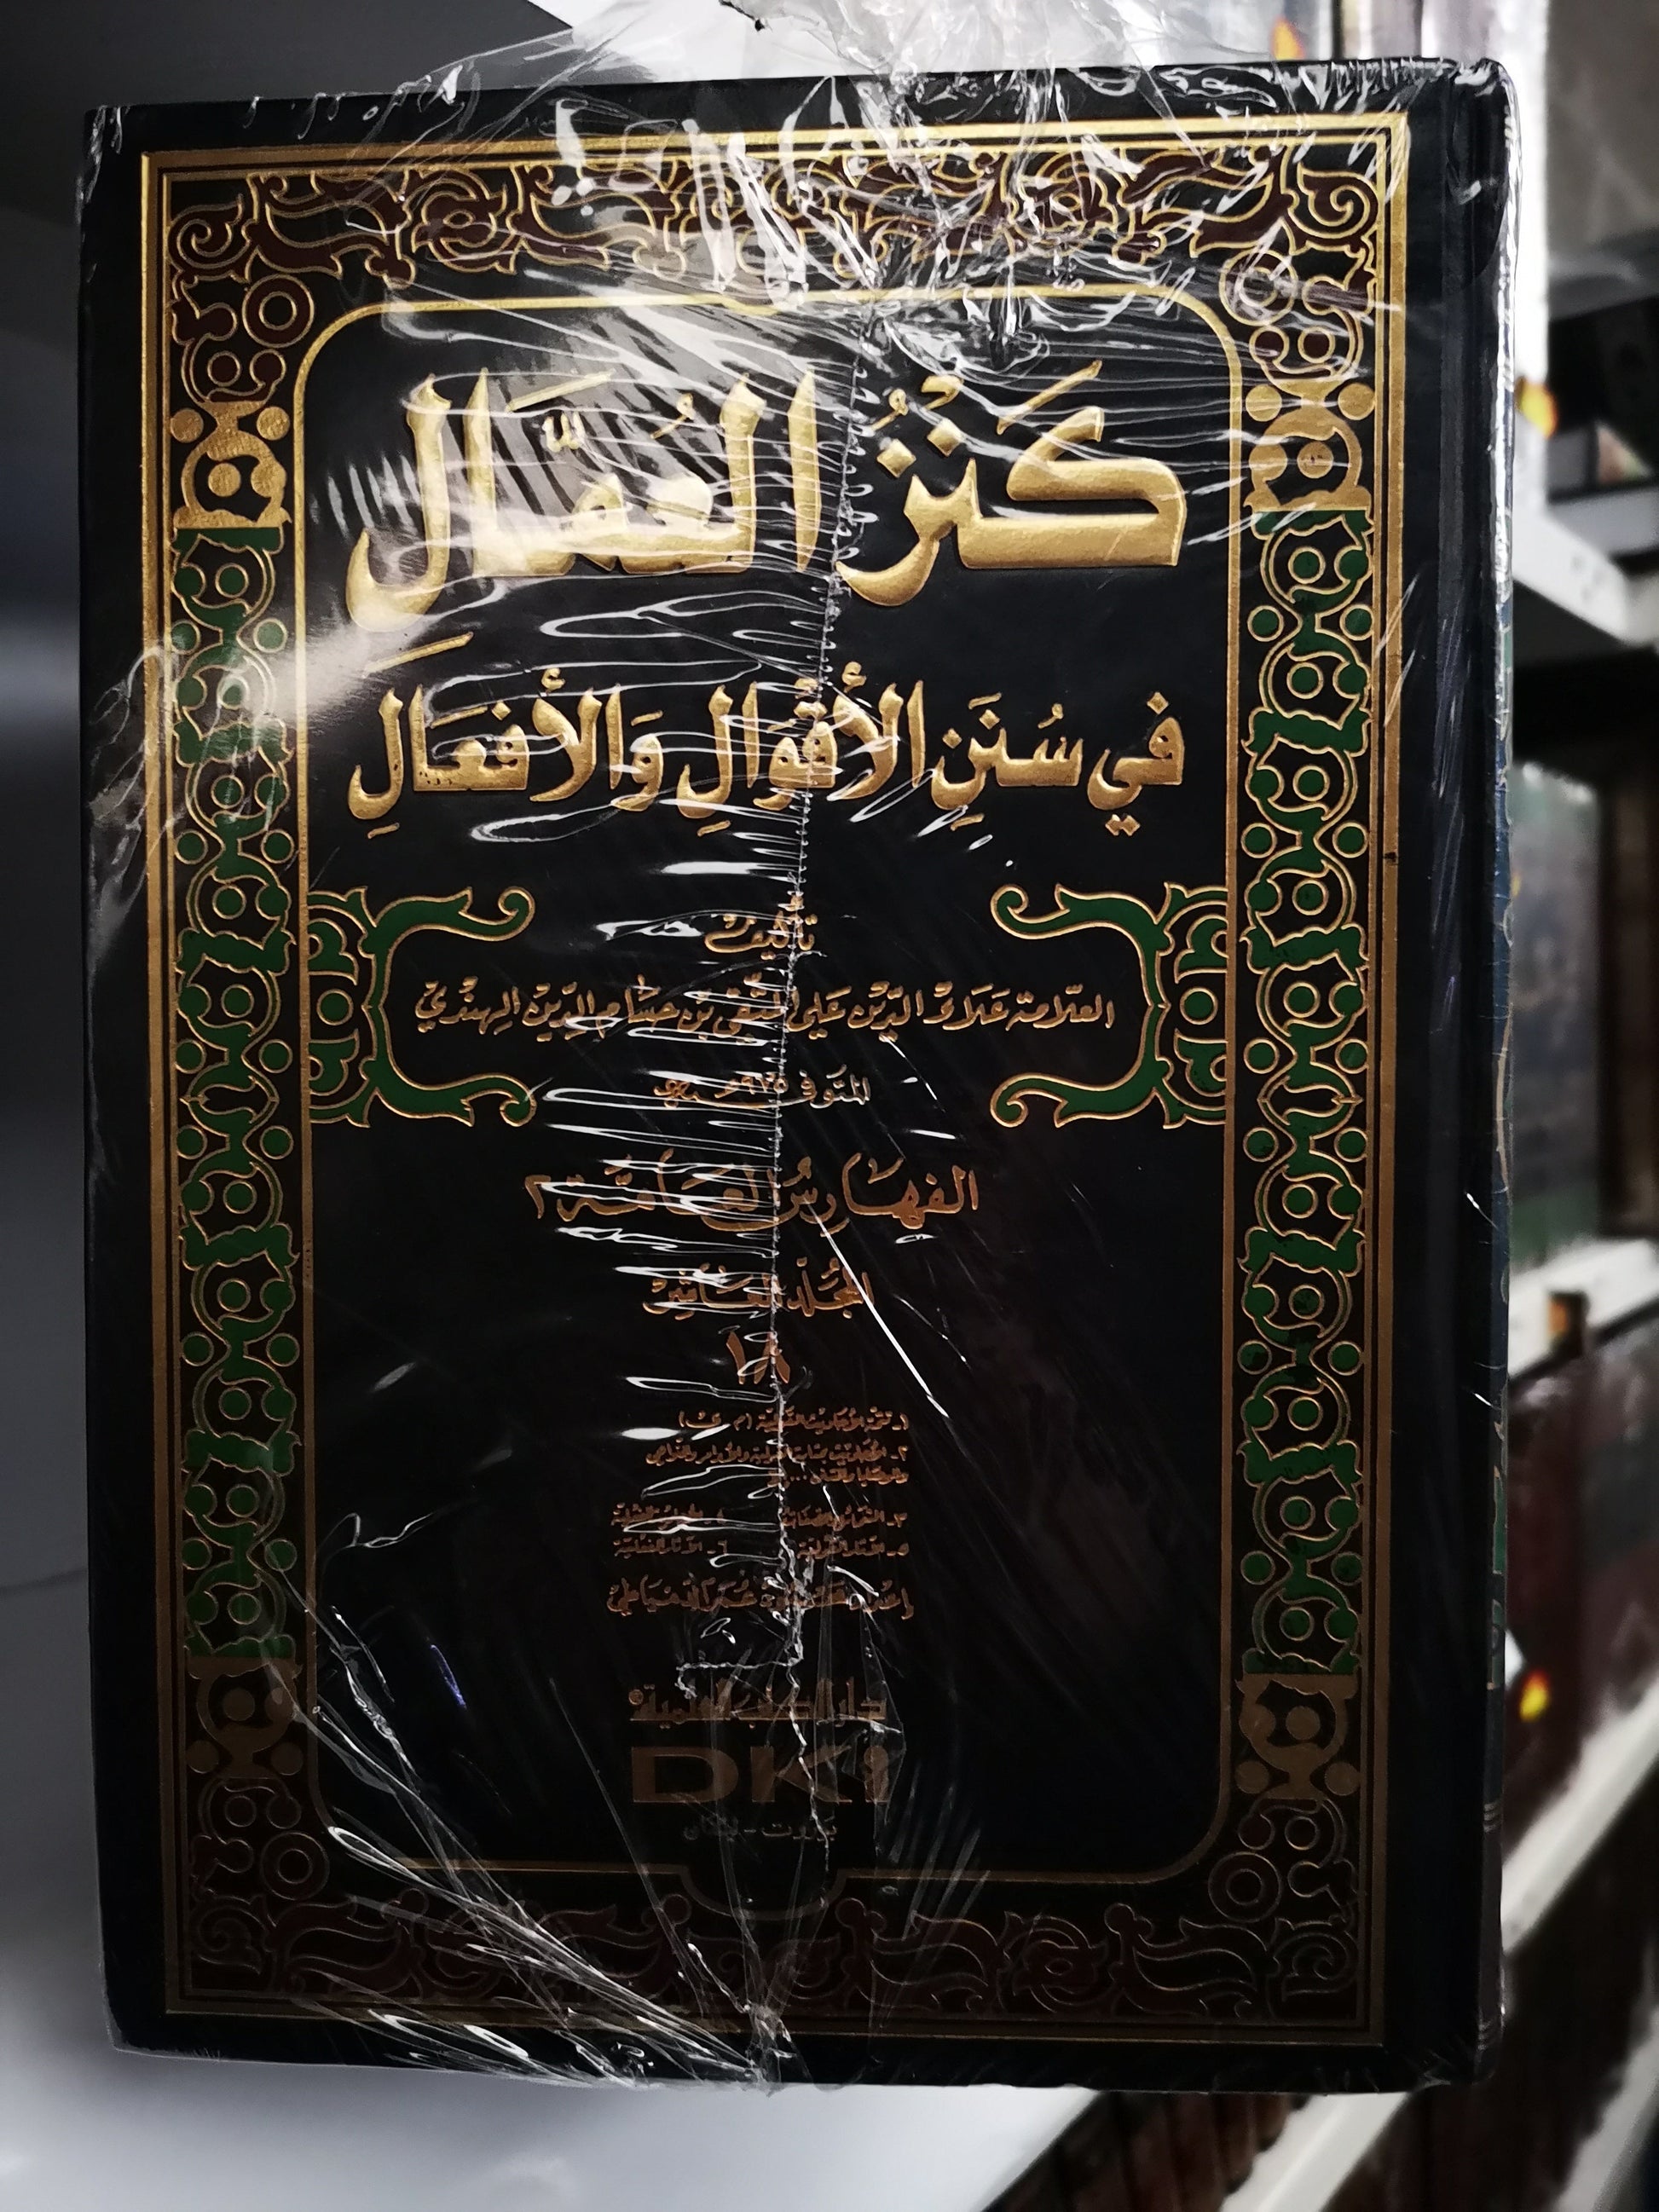 كَنْزُ العُمَّالِ
في سُنَنِ الأَقْوَالِ وَالأَفعَالِ
تأليف
العلامة علاء الدين علي المتقي بن حسام الدين الهندي
المتوفى ٩٧٥هـ
الفهارس العامة ٢
المجلد العاشر
١٨
١-
٢-
٣-
٥-
٦- الآثار الفعلية
عمر الدمياطي
دار الكتب العلمية
DKi
بيروت - لبنان